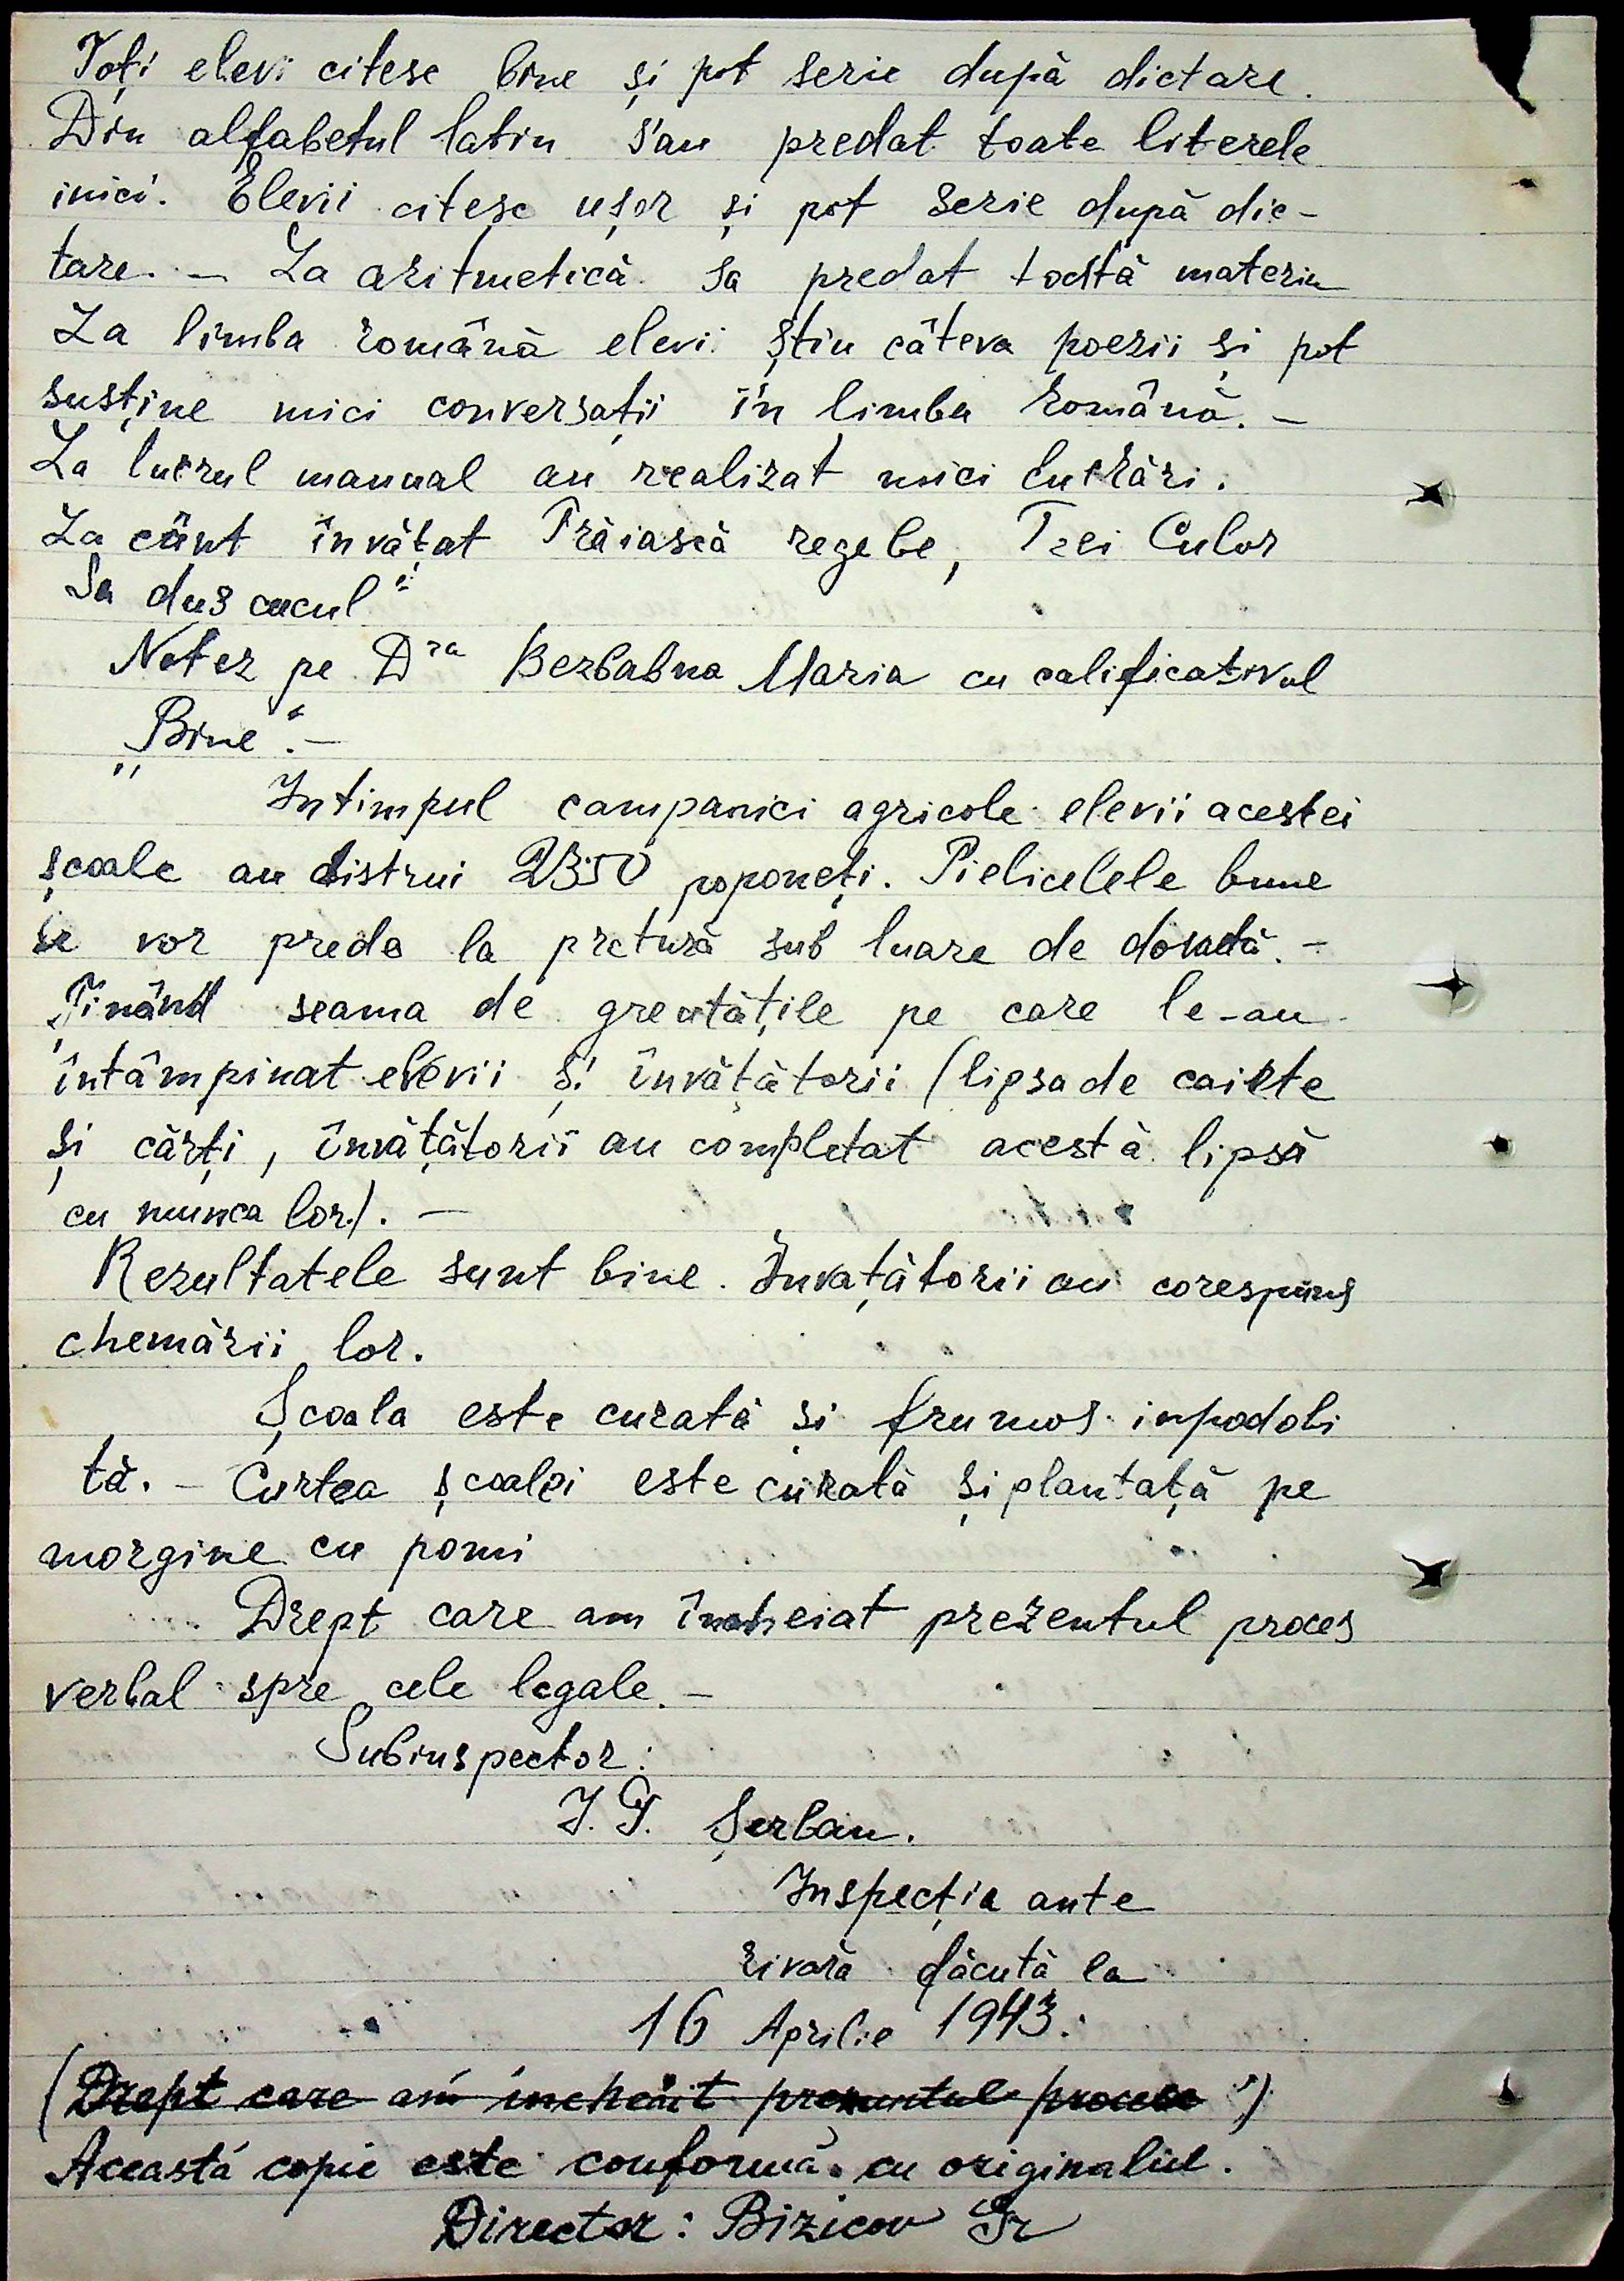 Toți elevi citesc bine și pot serie după dictare.
Din alfabetul latin s'au predat toate literele
mici. Elevii citesc ușor și pot serie după dic-
tare. – La aritmetică sa predat toată materia
La limba română elevii știu câteva poezii și pot
susține mici conversații în limba română. –
La lucrul manual au realizat mici lucrări.
La cânt învățat Trăiască regele, Trei Culor
Sa dus cucul"
Notez pe Dra Berbabna Maria cu calificativul
„Bine". –
Intimpul campaniei agricole elevii acestei
școale au distrui 2350 poponeți. Pielicelele bune
se vor preda la pretură sub luare de dovadă. –
Ținând seama de greutățile pe care le-au
întâmpinat elevii și învățătorii (lipsa de caiete
și cărți, învățătorii au completat acestă lipsă
cu munca lor). –
Rezultatele sunt bine. Învațătorii au corespuns
chemării lor.
Școala este curată si frumos inpodobi
tă. – Curtea școalei este curată și plantață pe
morgine cu pomi
Drept care am încheiat prezentul proces
verbal spre cele legale. –
Subinspector:
I. G. Șerban.
Inspecția ante
rivară făcută la
16 Aprilie 1943.
(Drept care am incheiat prezentul procese")
Această copie este conformă cu originalul.
Director: Bizicov Gr